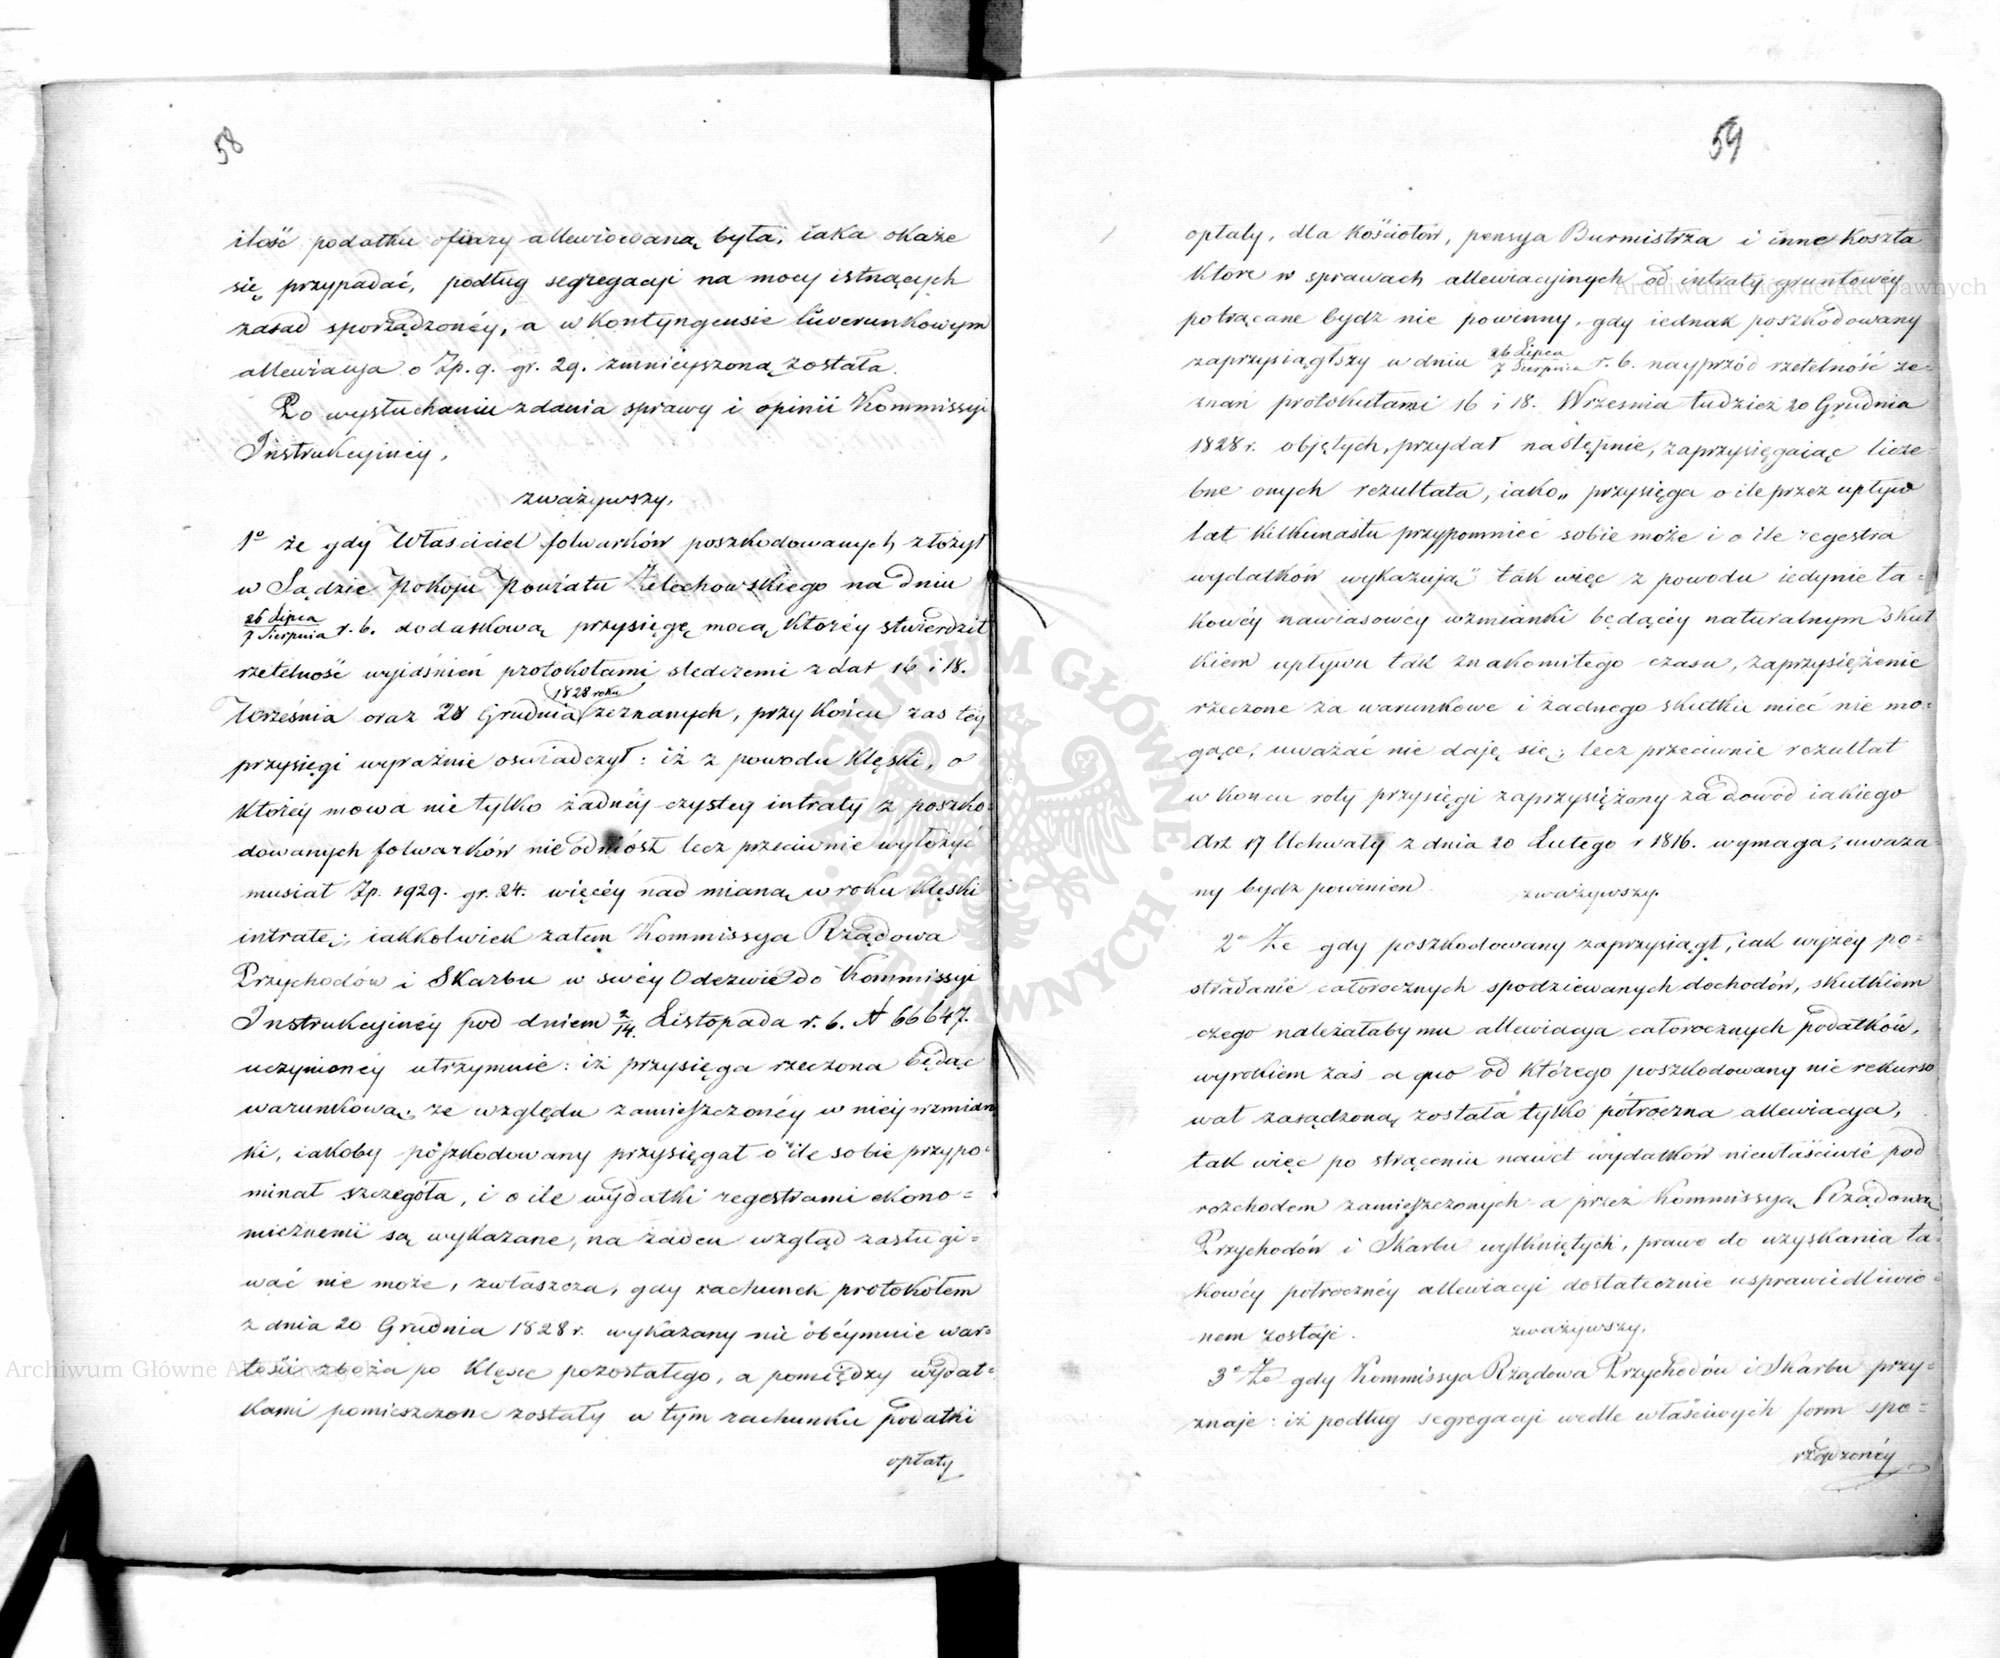 58
ilość podatku ofiary allewiowaną była, iaka okaże
się przypadać, podług segregacyi na mocy istnących
zasad sporządzonéy, a w kontyngensie liwerunkowym
allewiacya o Zp. 9. gr. 29. zmnieyszoną została.
Po wysłuchaniu zdania sprawy i opinii Kommissyi
Instrukcyinéy,
zważywszy,
1o że gdy Właściciel folwarków poszkodowanych złożył
w Sądzie Pokoju Powiatu Żelechowskiego na dniu
26 Lipca
7 Sierpnia r. b. dodatkową przysięgę mocą któréy stwierdził
rzetelność wyiaśnień protokołami sledczemi z dat 16 i 18.
1828 roku
Września oraz 20 Grudnia zeznanych, przy końcu zas téy
przysięgi wyraźnie oświadczył: iż z powodu klęski, o
któréy mowa nie tylko żadnéy czystey intraty z poszko=
dowanych folwarków nie odniósł lecz przeciwnie wyłożyć
musiał Zp. 1929. gr. 24. więcéy nad mianą w roku klęski
intratę; iakkolwiek zatem Kommissya Rządowa
Przychodów i Skarbu w swéy Odezwie do Kommissyi
Instrukcyinéy pod dniem 2/14. Listopada r. b. N 66647.
uczynionéy utrzymuie: iż przysięga rzeczona będąc
warunkową, ze względu zamieszczonéy w niéy wzmian
ki, iakoby poszkodowany przysięgał o ile sobie przypo=
minał szczegóła, i o ile wydatki regestrami ekono=
micznemi są wykazane, na żaden wzgląd zasługi=
wać nie może, zwłaszcza, gdy rachunek protokołem
z dnia 20 Grudnia 1828 r. wykazany nie obéymuie war=
tości zboża po klęsce pozostałego, a pomiędzy wydat=
kami pomieszczone zostały w tym rachunku podatki
opłaty
59
opłaty, dla kościołów, pensya Burmistrza i inne koszta
które w sprawach allewiacyinych od intraty gruntowéy
potrącane bydz nie powinny, gdy iednak poszkodowany
zaprzysiągłszy w dniu 26 Lipca
7 Sierpnia r. b. nayprzód rzetelność ze=
znań protokułami 16 i 18. Wrzesnia tudzież 20 Grudnia
1828 r. objętych, przydał następnie, zaprzysięgaiąc licze=
bne onych rezultata, iako „ przysięga o ile przez upływ
lat kilkunastu przypomnieć sobie może i o ile regestra
wydatków wykazują" tak więc z powodu iedynie ta=
kowéy nawiasowéy wzmianki będącéy naturalnym skut
kiem upływu tak znakomitego czasu, zaprzysiężenie
rzeczone za warunkowe i żadnego skutku mieć nie mo=
gące, uważać nie daję się; lecz przeciwnie rezultat
w koncu roty przysięgi zaprzysiężony za dowód iakiego
Art 17 Uchwały z dnia 20 Lutego r 1816. wymaga, uważa=
ny bydz powinien. zważywszy.
2o Że gdy poszkodowany zaprzysiągł, iak wyżéy po=
stradanie całorocznych spodziewanych dochodów, skutkiem
czego należałaby mu allewiacya całorocznych podatków,
wyrokiem zaś a quo od którego poszkodowany nie rekurso
wał zasądzoną została tylko półroczna allewiacya,
tak więc po strąceniu nawet wydatków niewłaściwie pod
rozchodem zamieszczonych a przez Kommissyą Rządową
Przychodów i Skarbu wytkniętych, prawo do uzyskania ta=
kowéy półrocznéy allewiacyi dostatecznie usprawiedliwio=
nem zostaje. zważywszy,
3o Że gdy Kommissya Rządowa Przychodów i Skarbu przy=
znaje: iż podług segregacyi wedle właściwych form spo=
rządzonéy
Archiwum Główne Akt Dawnych
Archiwum Główne Akt Dawnych
ARCHIWUM GŁÓWNE AKT DAWNYCH